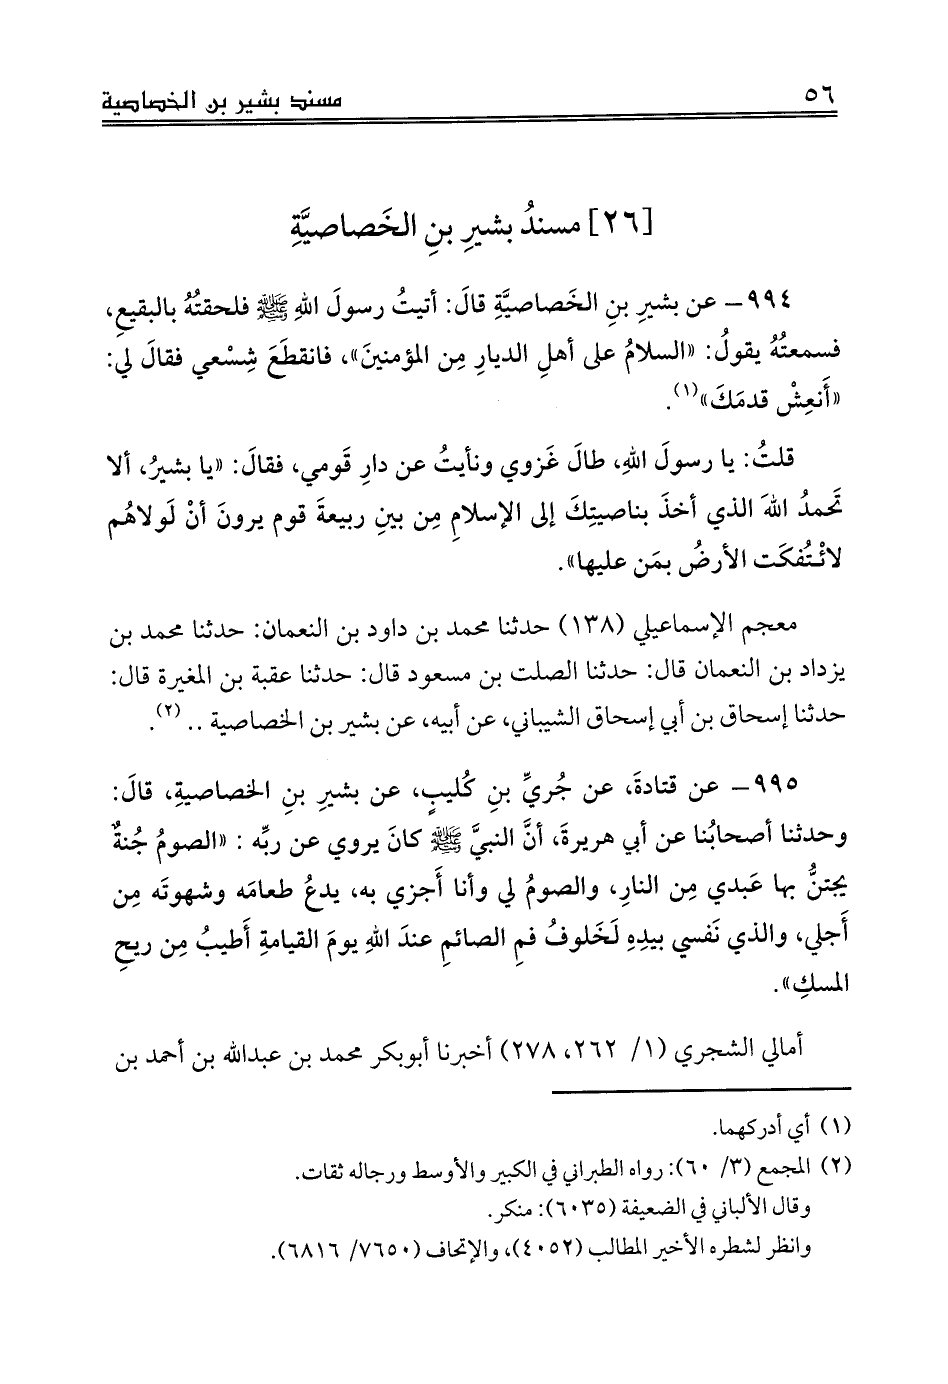 ٥٦
مسند بشير بن الخصاصية
[٢٦] مسندُ بشيرِ بنِ الخَصاصيَّةِ
٩٩٤ـ عن بشيرِ بنِ الخَصاصيَّةِ قالَ: أتيتُ رسولَ اللهِ ﷺ فلحقتُهُ بالبقيعِ،
فسمعتُهُ يقولُ: «السلامُ على أهلِ الديارِ مِن المؤمنينَ»، فانقطَعَ شِسْعي فقالَ لي:
«أَنعِشْ قدمَكَ»(١).
قلتُ: يا رسولَ اللهِ، طالَ غَزوي ونأيتُ عن دارِ قَومي، فقالَ: «يا بشيرُ، ألا
تَحمدُ اللهَ الذي أخذَ بناصيتِكَ إلى الإسلامِ مِن بينِ ربيعةَ قومٍ يرونَ أنْ لَولاهُم
لائْتُفكَت الأرضُ بمَن عليها».
معجم الإسماعيلي (١٣٨) حدثنا محمد بن داود بن النعمان: حدثنا محمد بن
يزداد بن النعمان قال: حدثنا الصلت بن مسعود قال: حدثنا عقبة بن المغيرة قال:
حدثنا إسحاق بن أبي إسحاق الشيباني، عن أبيه، عن بشير بن الخصاصية .. (٢).
٩٩٥ـ عن قتادةَ، عن جُريِّ بنِ كُليبٍ، عن بشيرِ بنِ الخصاصيةِ، قالَ:
وحدثنا أصحابُنا عن أبي هريرةَ، أنَّ النبيَّ ﷺ كانَ يروي عن ربِّه : «الصومُ جُنةٌ
يجتنُّ بها عَبدي مِن النارِ، والصومُ لي وأنا أَجزي به، يدعُ طعامَه وشهوتَه مِن
أَجلي، والذي نَفسي بيدِهِ لَخلوفُ فمِ الصائمِ عندَ اللهِ يومَ القيامةِ أَطيبُ مِن ريحِ
المسكِ».
أمالي الشجري (١/ ٢٦٢، ٢٧٨) أخبرنا أبوبكر محمد بن عبدالله بن أحمد بن
(١) أي أدركهما.
(٢) المجمع (٣/ ٦٠): رواه الطبراني في الكبير والأوسط ورجاله ثقات.
وقال الألباني في الضعيفة (٦٠٣٥): منكر.
وانظر لشطره الأخير المطالب (٤٠٥٢)، والإتحاف (٧٦٥٠/ ٦٨١٦).